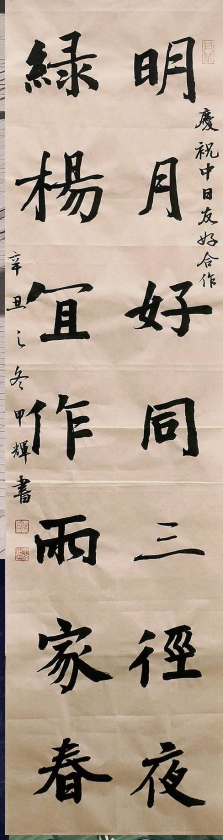 慶祝中日友好合作
明月好同三徑夜
綠楊宜作兩家春
辛丑之冬甲輝書